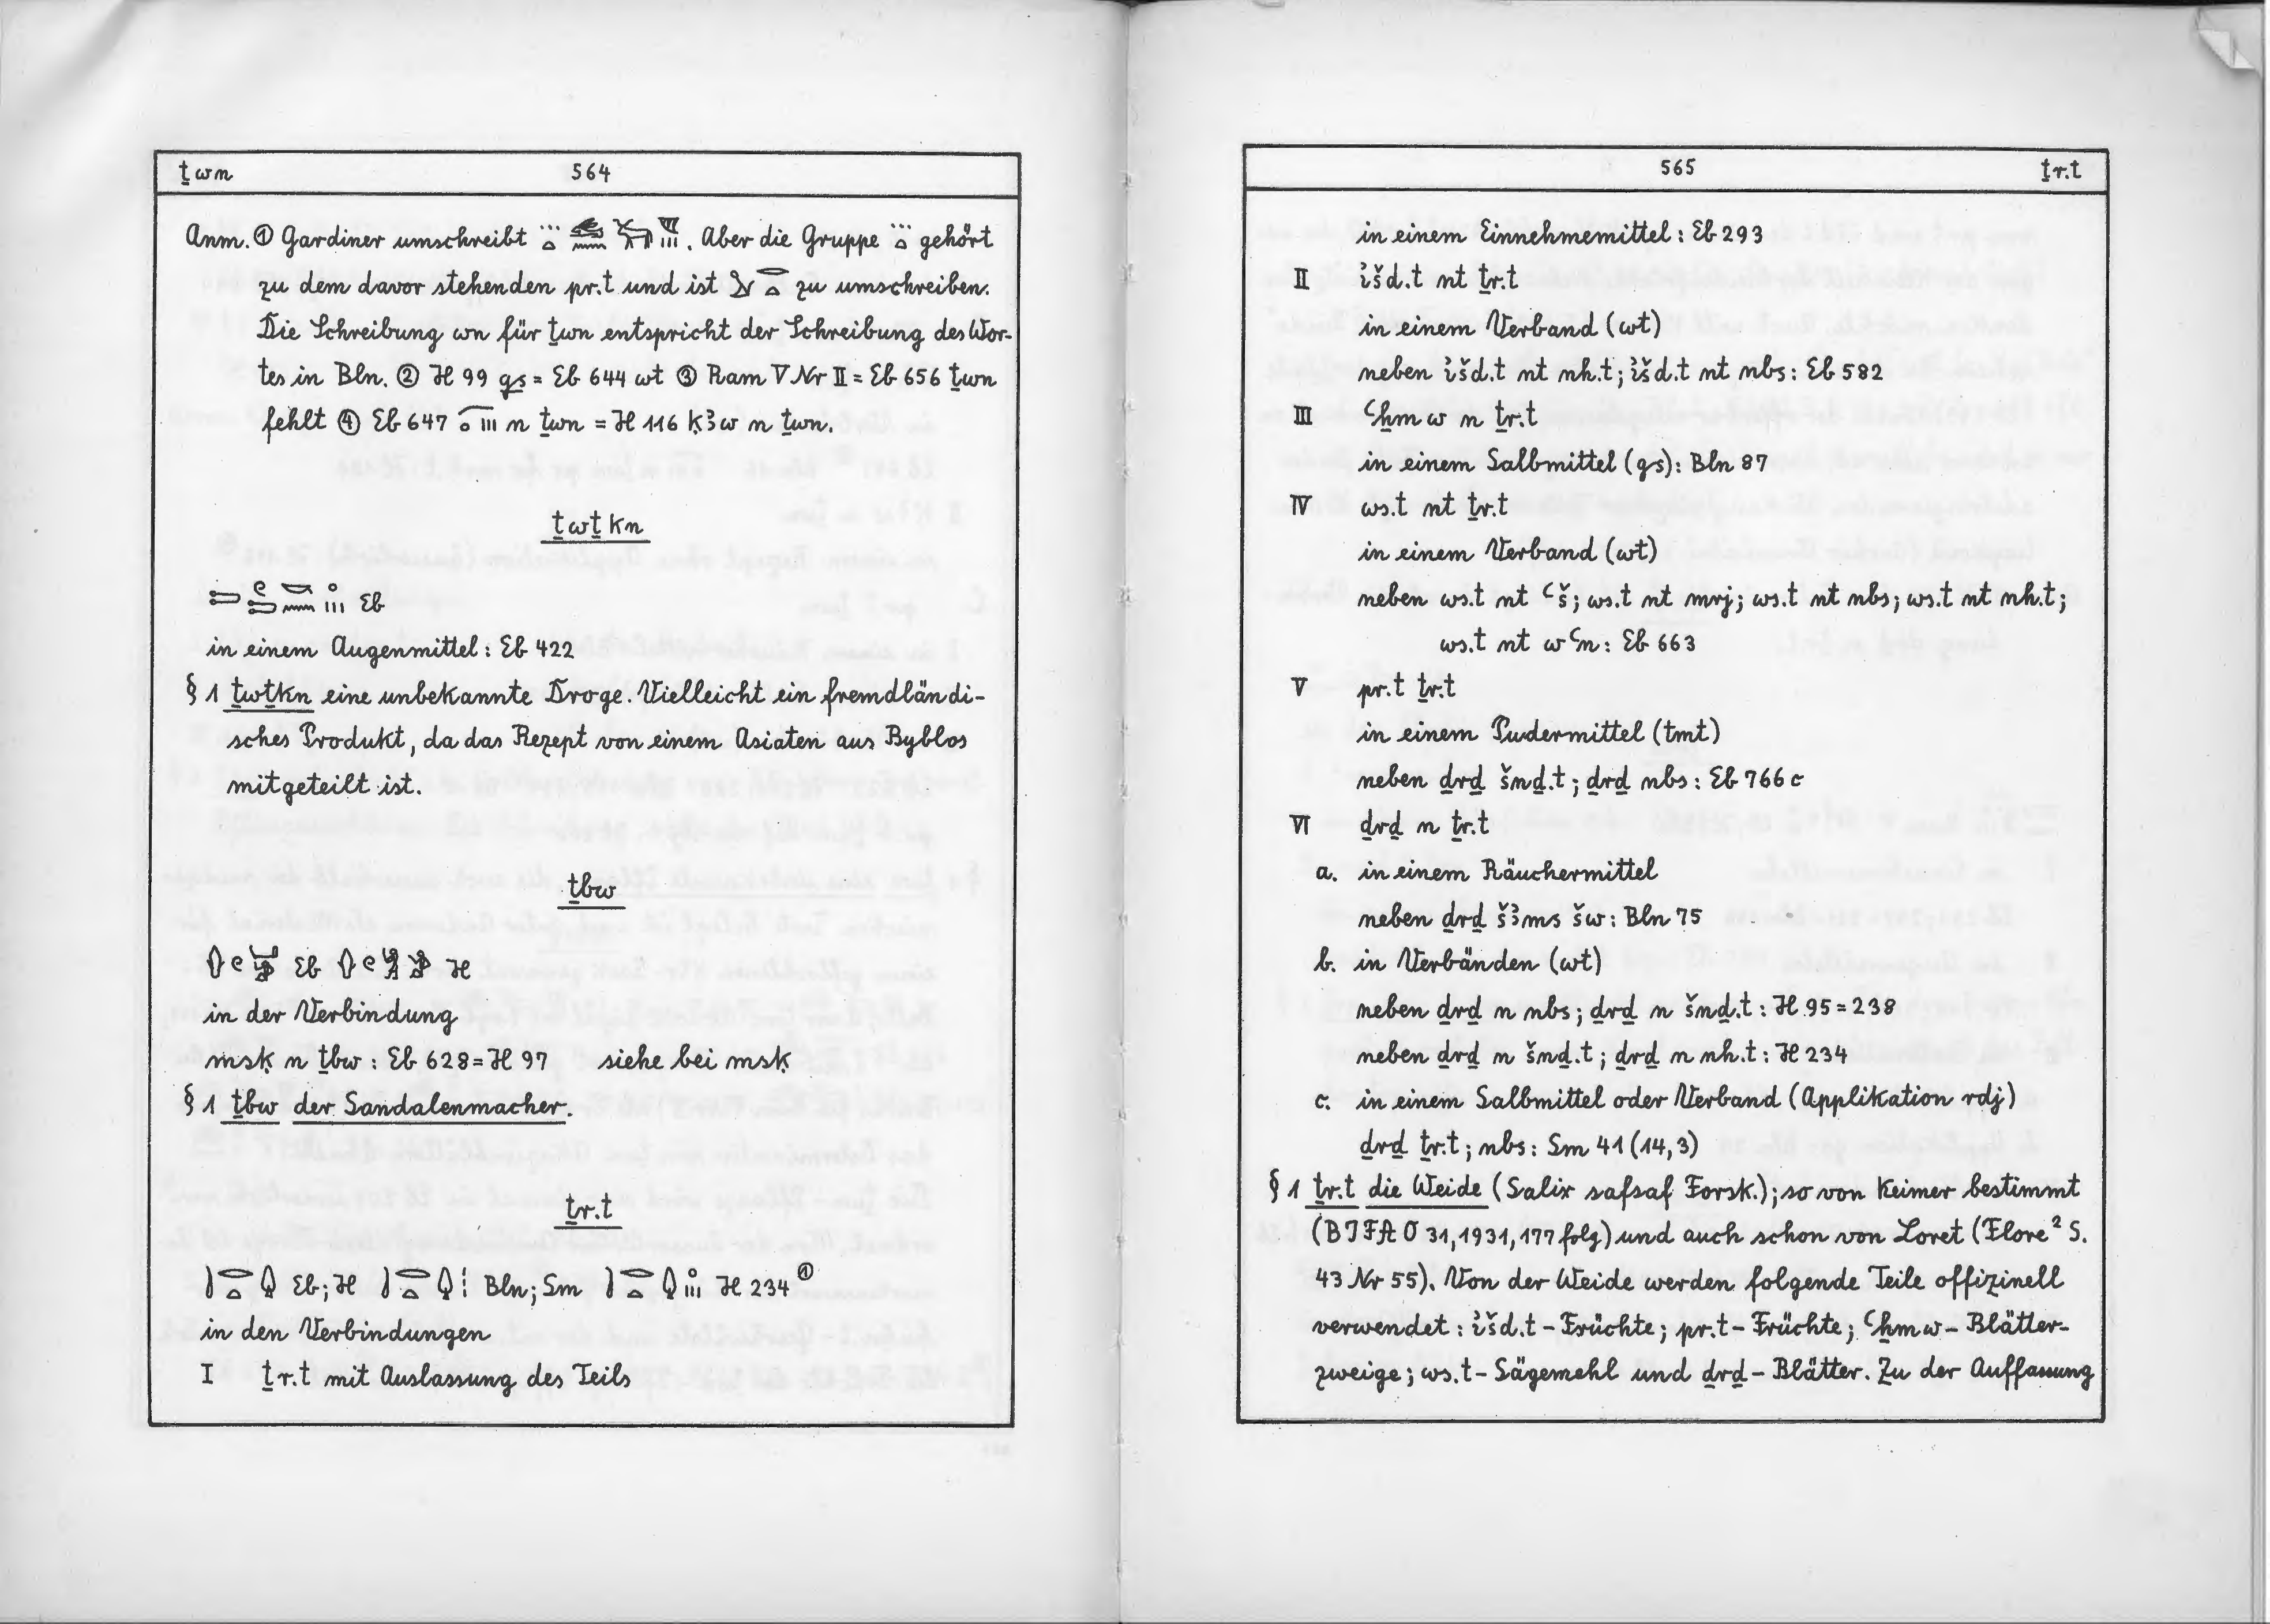 ṯwn 564
Anm. ① Gardiner umschreibt . Aber die Gruppe gehört
zu dem davor stehenden pr.t und ist zu umschreiben.
Die Schreibung wn für ṯwn entspricht der Schreibung des Wor-
tes in Bln. ② H 99 gs = Eb 644 wt ③ Ram V Nr II = Eb 656 ṯwn
fehlt ④ Eb 647 n ṯwn = H 116 ḳꜣw n ṯwn.
ṯwṯkn
Eb
in einem Augenmittel : Eb 422
§ 1 ṯwṯkn eine unbekannte Droge. Vielleicht ein fremdländi-
sches Produkt, da das Rezept von einem Asiaten aus Byblos
mitgeteilt ist.
ṯbw
Eb H
in der Verbindung
msḳ n ṯbw : Eb 628 = H 97 siehe bei msḳ
§ 1 ṯbw der Sandalenmacher.
ṯr.t
Eb; H Bln; Sm H 234 ①
in den Verbindungen
I ṯr.t mit Auslassung des Teils
565 ṯr.t
in einem Einnehmemittel : Eb 293
II ỉšd.t nt ṯr.t
in einem Verband (wt)
neben ỉšd.t nt nh.t; ỉšd.t nt nbs : Eb 582
III ꜥẖmw n ṯr.t
in einem Salbmittel (gs) : Bln 87
IV ws.t nt ṯr.t
in einem Verband (wt)
neben ws.t nt ꜥš; ws.t nt mrj; ws.t nt nbs; ws.t nt nh.t;
ws.t nt wꜥn : Eb 663
V pr.t ṯr.t
in einem Pudermittel (tmt)
neben ḏrḏ šnḏ.t; ḏrḏ nbs : Eb 766 c
VI ḏrḏ n ṯr.t
a. in einem Räuchermittel
neben ḏrḏ šꜣms šw : Bln 75
b. in Verbänden (wt)
neben ḏrḏ n nbs; ḏrḏ n šnḏ.t : H 95 = 238
neben ḏrḏ n šnḏ.t; ḏrḏ n nh.t : H 234
c. in einem Salbmittel oder Verband (Applikation rdj)
ḏrḏ ṯr.t; nbs : Sm 41 (14,3)
§ 1 ṯr.t die Weide (Salix safsaf Forsk.); so von Keimer bestimmt
(BIFAO 31, 1931, 177 folg) und auch schon von Loret (Flore² S.
43 Nr 55). Von der Weide werden folgende Teile offizinell
verwendet : ỉšd.t - Früchte; pr.t - Früchte; ꜥẖmw - Blätter-
zweige; ws.t - Sägemehl und ḏrḏ - Blätter. Zu der Auffassung